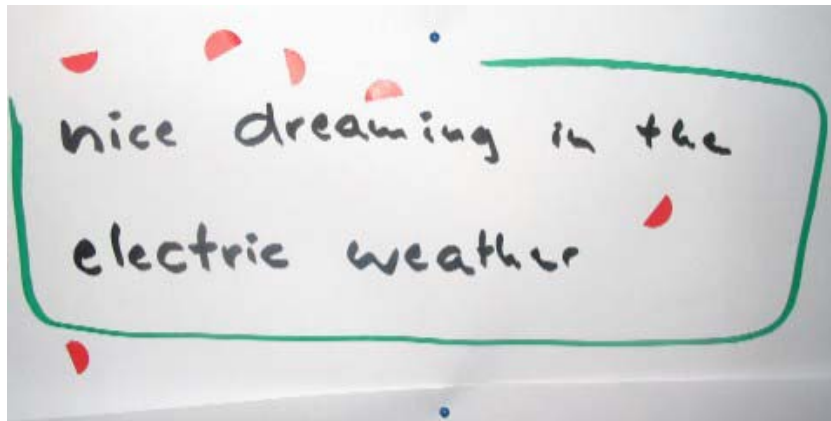 nice dreaming in the
electric weather